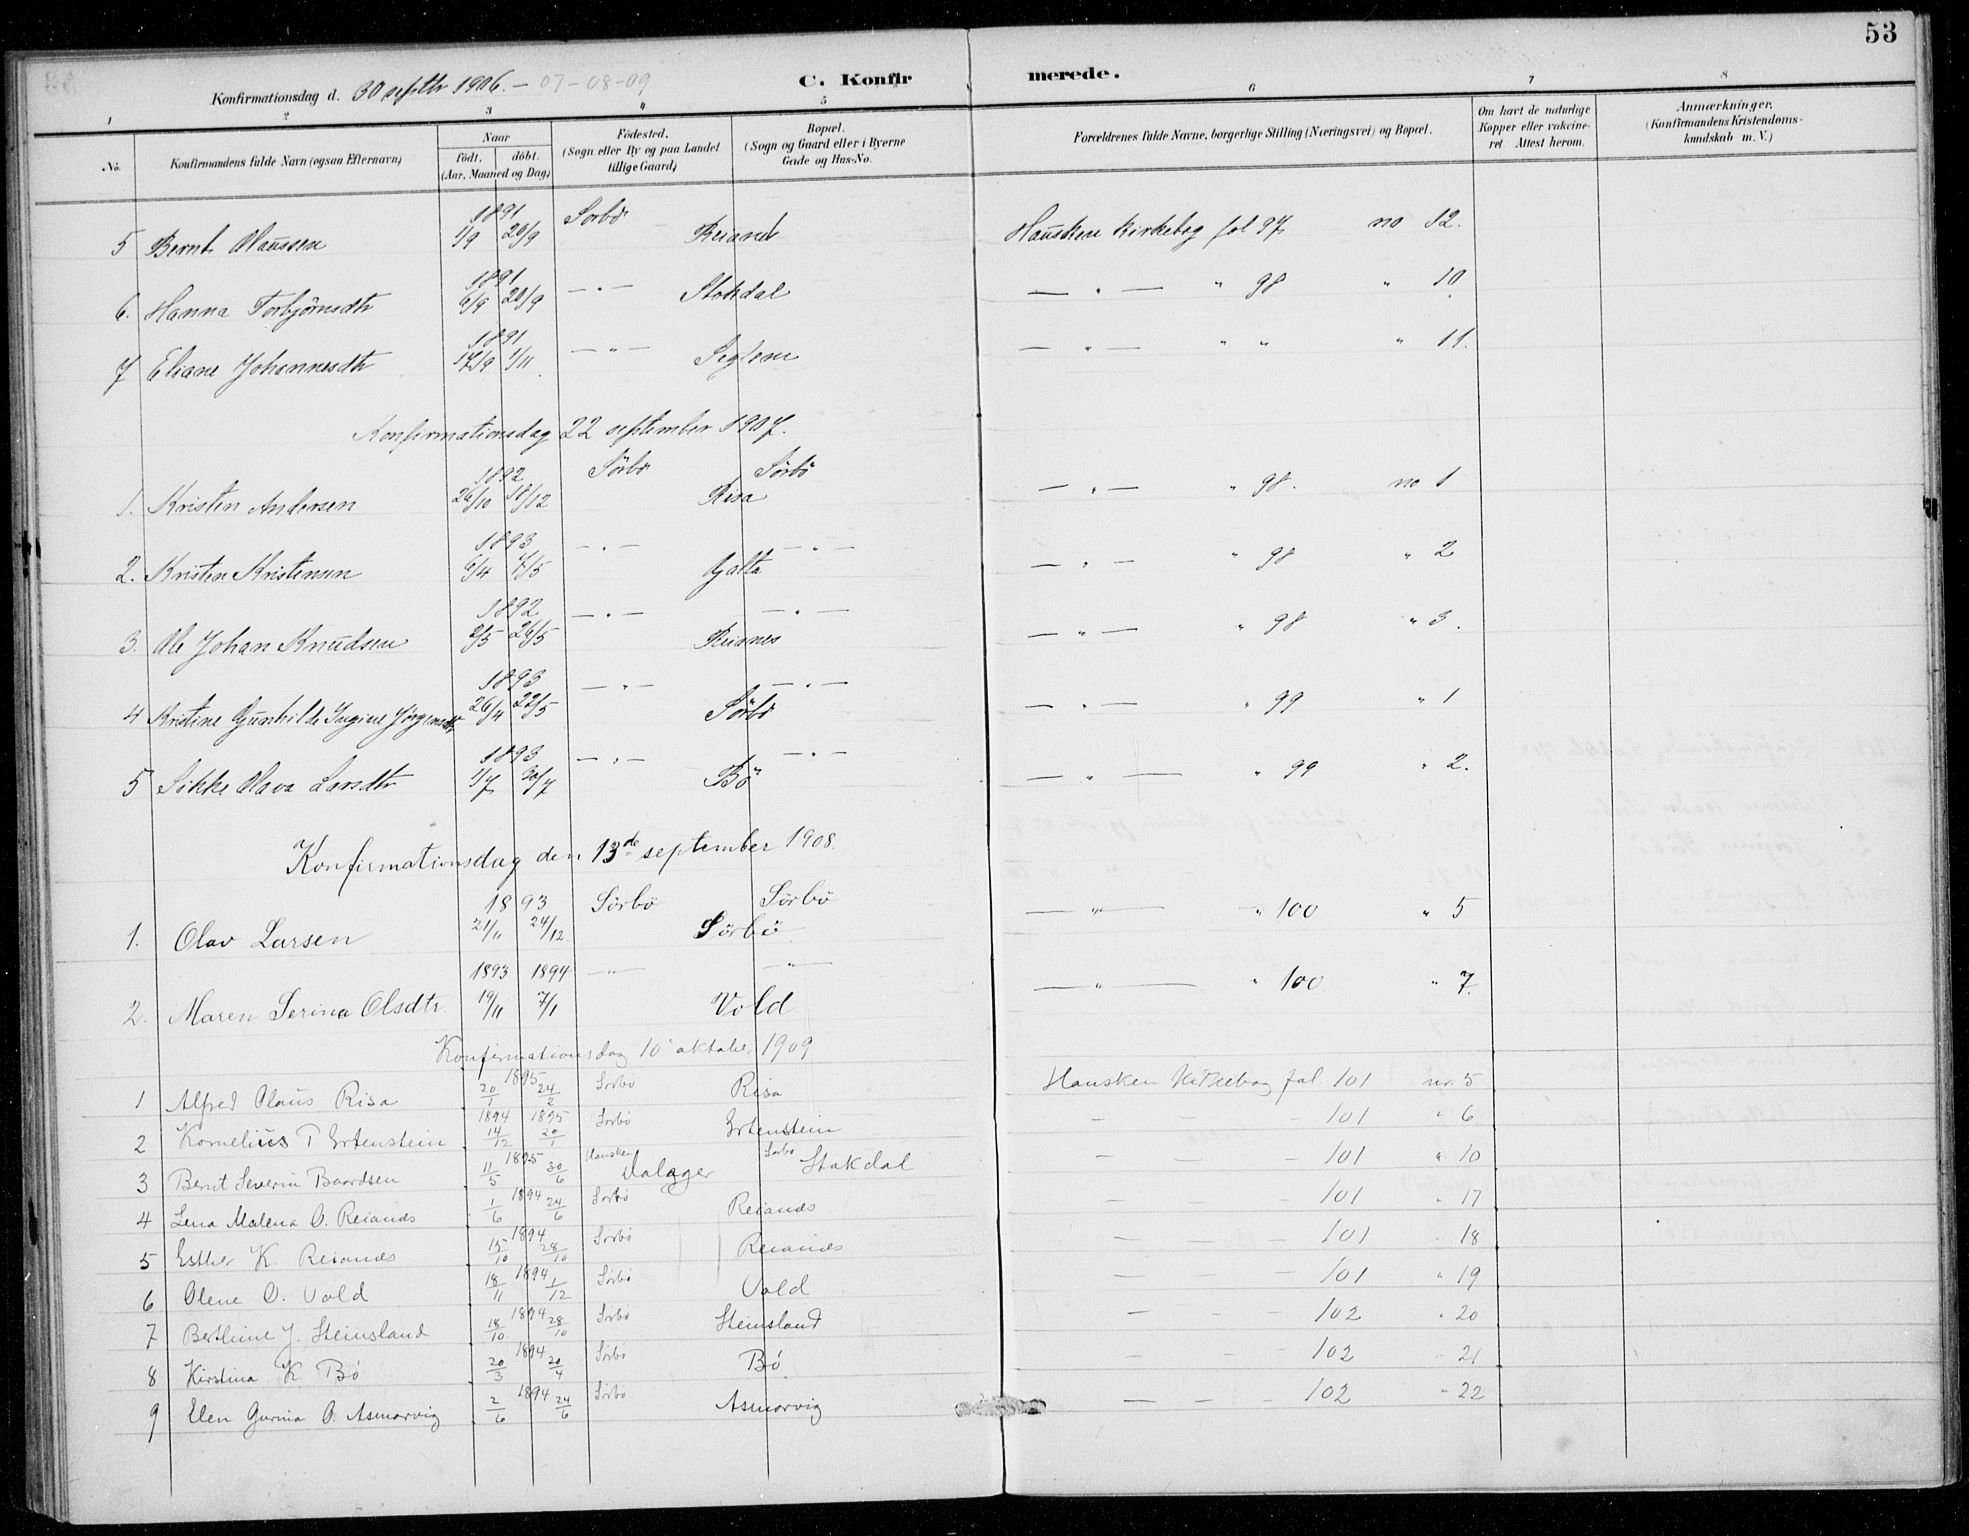 53
C. Konfirmerede.
Konfirmationsdag d. 30 septbr 1906. - 07-08-09
1 2 3 4 5 6 7 8
No. Konfirmandens fulde Navn (ogsaa Efternavn) Naar født. døbt. (Aar, Maaned og Dag) Fødested. (Sogn eller By og paa Landet tillige Gaard) Bopæl. (Sogn og Gaard eller i Byerne Gade og Hus-No. Forældrenes fulde Navne, borgerlige Stilling (Næringsvei) og Bopæl. Om havt de naturlige Kopper eller vakcineret. Attest herom. Anmærkninger. (Konfirmandens Kristendomskundskab m. V.)
1891 Sørbø
5 Bernt Olaussen 1/9 20/9 Reiand Hausken Kirkebog fol 97. no 12.
1891
6. Hanna Torbjörnsdtr 6/9 20/9 — " — Stokdal — " — " 98 " 10
1891
7 Eliane Johannesdtr 17/9 1/11 — " — Seglem — " — " " " 11.
Konfirmationsdag 22 september 1907.
1892 Sörbø Sörbö
1. Kristen Andersen 26/10 18/12 Risa — " — " 98. no 1
1893 — " — — " —
2. Kristen Kristensen 6/4 7/5 Galta — " — " 98 " 2
1892 — " — — " —
3. Ole Johan Knudsen 2/5 26/5 Reianes — " — " 98 " 3.
1893 — " — — " —
4 Kristine Gunhilde Ingine Jörgensdtr 26/4 22/5 Sörbö — " — " 99 " 1
1893 — " — — " —
5 Sikke Olava Larsdtr 1/7 30/7 Bö — " — " 99 " 2.
Konfirmationsdag den 13de september 1908.
1893 Sörbö Sörbö
1. Olav Larsen 21/11 24/12 Sörbö — " — " 100 " 5
1893 1894 — " — — " —
2. Maren Serina Olsdtr. 19/11 7/1 Vold — " — " 100 " 7.
Konfirmationsdag 10 oktober 1909
1 Alfred Olaus Risa 20/1 1895 24/2 Sørbø Risa Hausken Kirkebog fol 101 nr. 5
2 Kornelius T Ertenstein 1894 14/12 1895 20/1 Sørbø Ertenstein — — 101 " 6
3 Bernt Severin Baardsen 11/5 1895 30/6 Hausken Dalager Sørbø Stakdal — — — 101 " 10
4 Lena Malena O. Reiands 1/6 1894 24/6 Sørbø Reiands — — — 101 " 17
5 Esther K. Reiands 15/10 1894 28/10 Sørbø Reiands — — — 101 " 18
6 Olene O. Vold 18/11 1894 1/12 Sørbø Vold — — — 101 " 19
7 Berthine J. Steinsland 18/10 1894 28/10 Sørbø Steinsland — — — 102 " 20
8 Kirstina K. Bö 20/3 1894 20/4 Sørbø Bö — — — 102 " 21
9 Elen Gurina O. Asmarvig 2/6 1894 24/6 Sørbø Asmarvig — — — 102 " 22